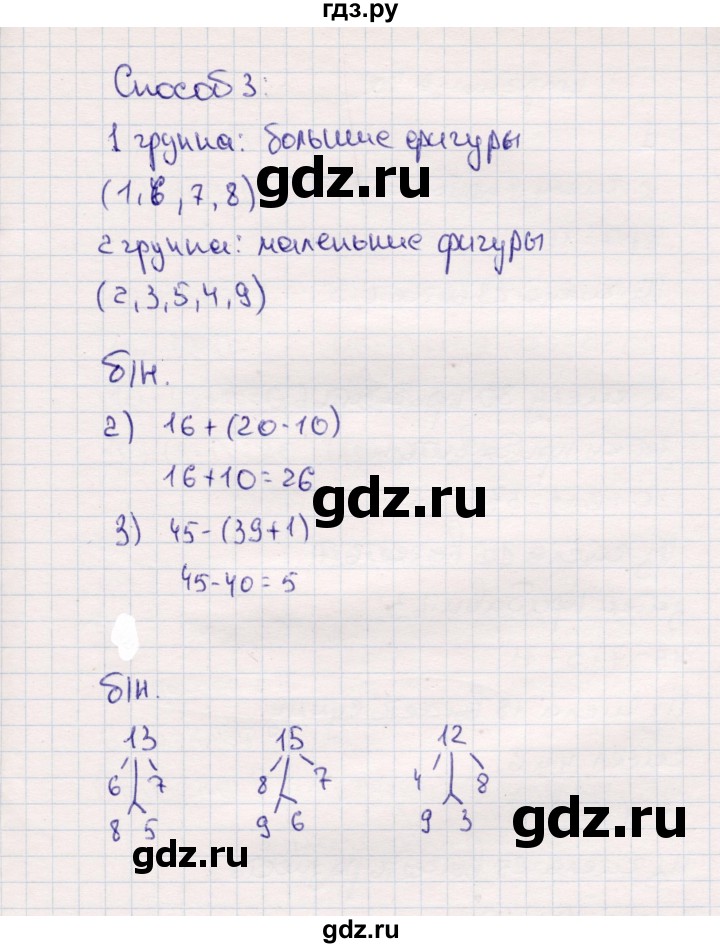 гдз.ру
Способ 3:
1 группа: большие фигуры
(1, 6, 7, 8)
2 группа: маленькие фигуры
(2, 3, 5, 4, 9)
gdz.ru
б/н.
2) 16+(20-10)
16+10=26
gdz.ru
3) 45-(39+1)
45-40=5
б/н.
13 15 12
6 7 8 7 4 8
8 5 9 6 9 3
gdz.ru
gdz.ru
gdz.ru